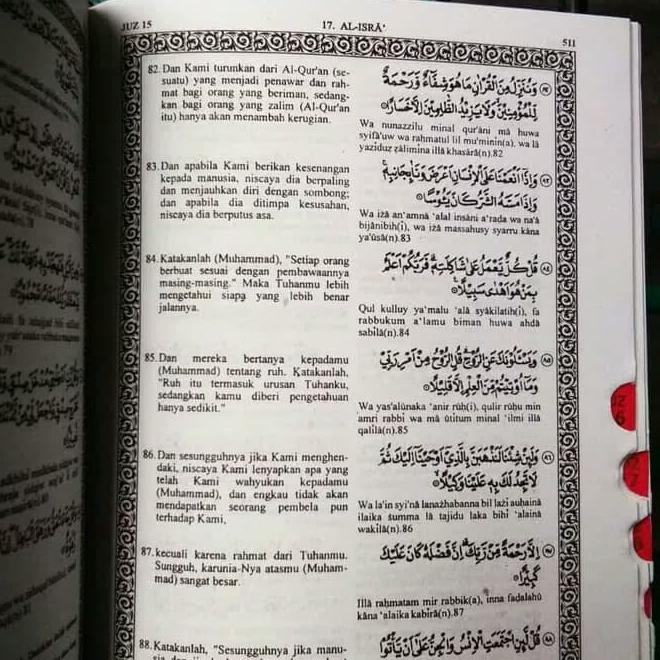 JUZ 15
17. AL-ISRĀ'
511
82. Dan Kami turunkan dari Al-Qur'an (se-
suatu) yang menjadi penawar dan rah-
mat bagi orang yang beriman, sedang-
kan bagi orang yang zalim (Al-Qur'an
itu) hanya akan menambah kerugian.
وَنُنَزِّلُ مِنَ الْقُرْاٰنِ مَا هُوَ شِفَاۤءٌ وَّرَحْمَةٌ
لِّلْمُؤْمِنِيْنَۙ وَلَا يَزِيْدُ الظّٰلِمِيْنَ اِلَّا خَسَارًا ۝٨٢
Wa nunazzilu minal qur'āni mā huwa
syifā'uw wa rahmatul lil mu'minīn(a), wa lā
yazīduẓ ẓālimīna illā khasārā(n).82
83. Dan apabila Kami berikan kesenangan
kepada manusia, niscaya dia berpaling
dan menjauhkan diri dengan sombong;
dan apabila dia ditimpa kesusahan,
niscaya dia berputus asa.
وَاِذَآ اَنْعَمْنَا عَلَى الْاِنْسَانِ اَعْرَضَ وَنَاٰ بِجَانِبِهٖۚ
وَاِذَا مَسَّهُ الشَّرُّ كَانَ يَـُٔوْسًا ۝٨٣
Wa iżā an'amnā 'alal insāni a'raḍa wa na'ā
bijānibih(ī), wa iżā massahusy syarru kāna
ya'ūsā(n).83
84. Katakanlah (Muhammad), "Setiap orang
berbuat sesuai dengan pembawaannya
masing-masing." Maka Tuhanmu lebih
mengetahui siapa yang lebih benar
jalannya.
قُلْ كُلٌّ يَّعْمَلُ عَلٰى شَاكِلَتِهٖۗ فَرَبُّكُمْ اَعْلَمُ
بِمَنْ هُوَ اَهْدٰى سَبِيْلًا ۝٨٤
Qul kulluy ya'malu 'alā syākilatih(ī), fa
rabbukum a'lamu biman huwa ahdā
sabīlā(n).84
85. Dan mereka bertanya kepadamu
(Muhammad) tentang ruh. Katakanlah,
"Ruh itu termasuk urusan Tuhanku,
sedangkan kamu diberi pengetahuan
hanya sedikit."
وَيَسْـَٔلُوْنَكَ عَنِ الرُّوْحِۗ قُلِ الرُّوْحُ مِنْ اَمْرِ رَبِّيْ
وَمَآ اُوْتِيْتُمْ مِّنَ الْعِلْمِ اِلَّا قَلِيْلًا ۝٨٥
Wa yas'alūnaka 'anir rūḥ(i), qulir rūḥu min
amri rabbī wa mā ūtītum minal 'ilmi illā
qalīlā(n).85
86. Dan sesungguhnya jika Kami menghen-
daki, niscaya Kami lenyapkan apa yang
telah Kami wahyukan kepadamu
(Muhammad), dan engkau tidak akan
mendapatkan seorang pembela pun
terhadap Kami,
وَلَىِٕنْ شِئْنَا لَنَذْهَبَنَّ بِالَّذِيْٓ اَوْحَيْنَآ اِلَيْكَ ثُمَّ
لَا تَجِدُ لَكَ بِهٖ عَلَيْنَا وَكِيْلًا ۝٨٦
Wa la'in syi'nā lanażhabanna bil lażī auḥainā
ilaika ṡumma lā tajidu laka bihī 'alainā
wakīlā(n).86
87. kecuali karena rahmat dari Tuhanmu.
Sungguh, karunia-Nya atasmu (Muham-
mad) sangat besar.
اِلَّا رَحْمَةً مِّنْ رَّبِّكَۗ اِنَّ فَضْلَهٗ كَانَ عَلَيْكَ
كَبِيْرًا ۝٨٧
Illā raḥmatam mir rabbik(a), inna faḍlahū
kāna 'alaika kabīrā(n).87
88. Katakanlah, "Sesungguhnya jika manu-
قُلْ لَّىِٕنِ اجْتَمَعَتِ الْاِنْسُ وَالْجِنُّ عَلٰٓى اَنْ يَّأْتُوْا